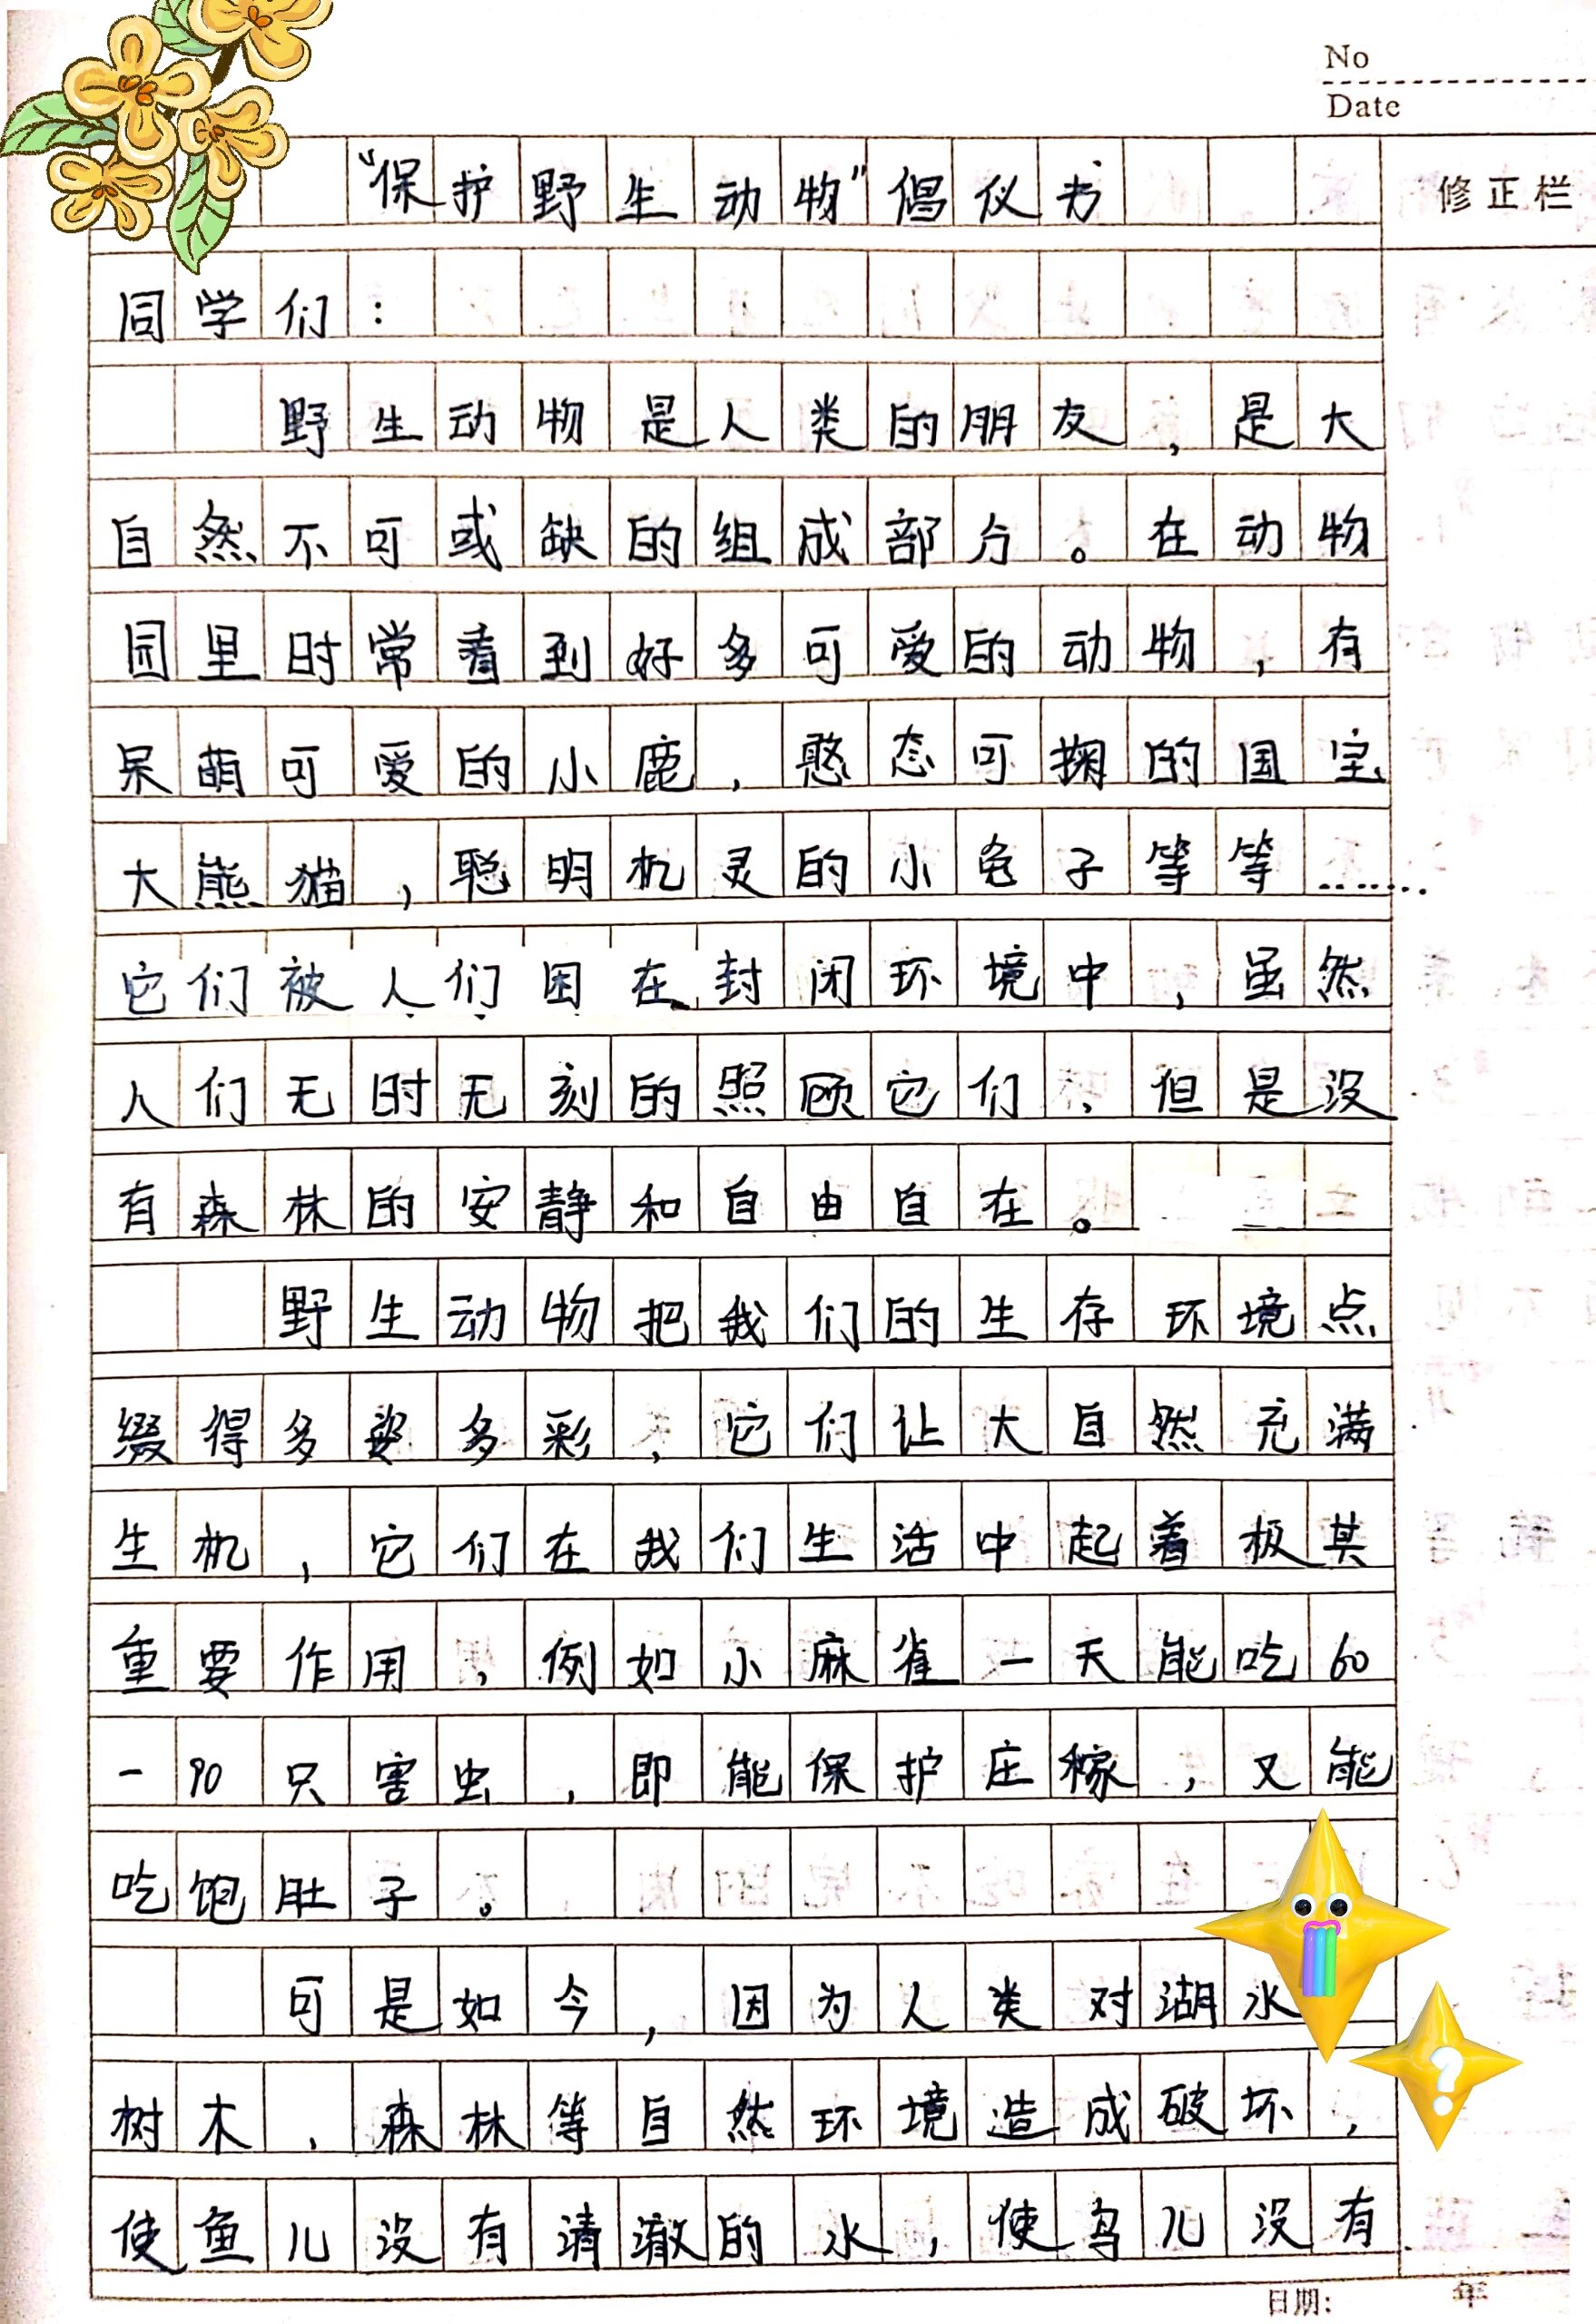 No
Date
“保护野生动物”倡仪书
修正栏
同学们：
野生动物是人类的朋友，是大
自然不可或缺的组成部分。在动物
园里时常看到好多可爱的动物，有
呆萌可爱的小鹿，憨态可掬的国宝
大熊猫，聪明机灵的小兔子等等……
它们被人们困在封闭环境中，虽然
人们无时无刻的照顾它们，但是没
有森林的安静和自由自在。
野生动物把我们的生存环境点
缀得多姿多彩，它们让大自然充满
生机，它们在我们生活中起着极其
重要作用，例如小麻雀一天能吃60
—90只害虫，即能保护庄稼，又能
吃饱肚子。
可是如今，因为人类对湖水
树木，森林等自然环境造成破坏，
?
使鱼儿没有清澈的水，使鸟儿没有
日期： 年